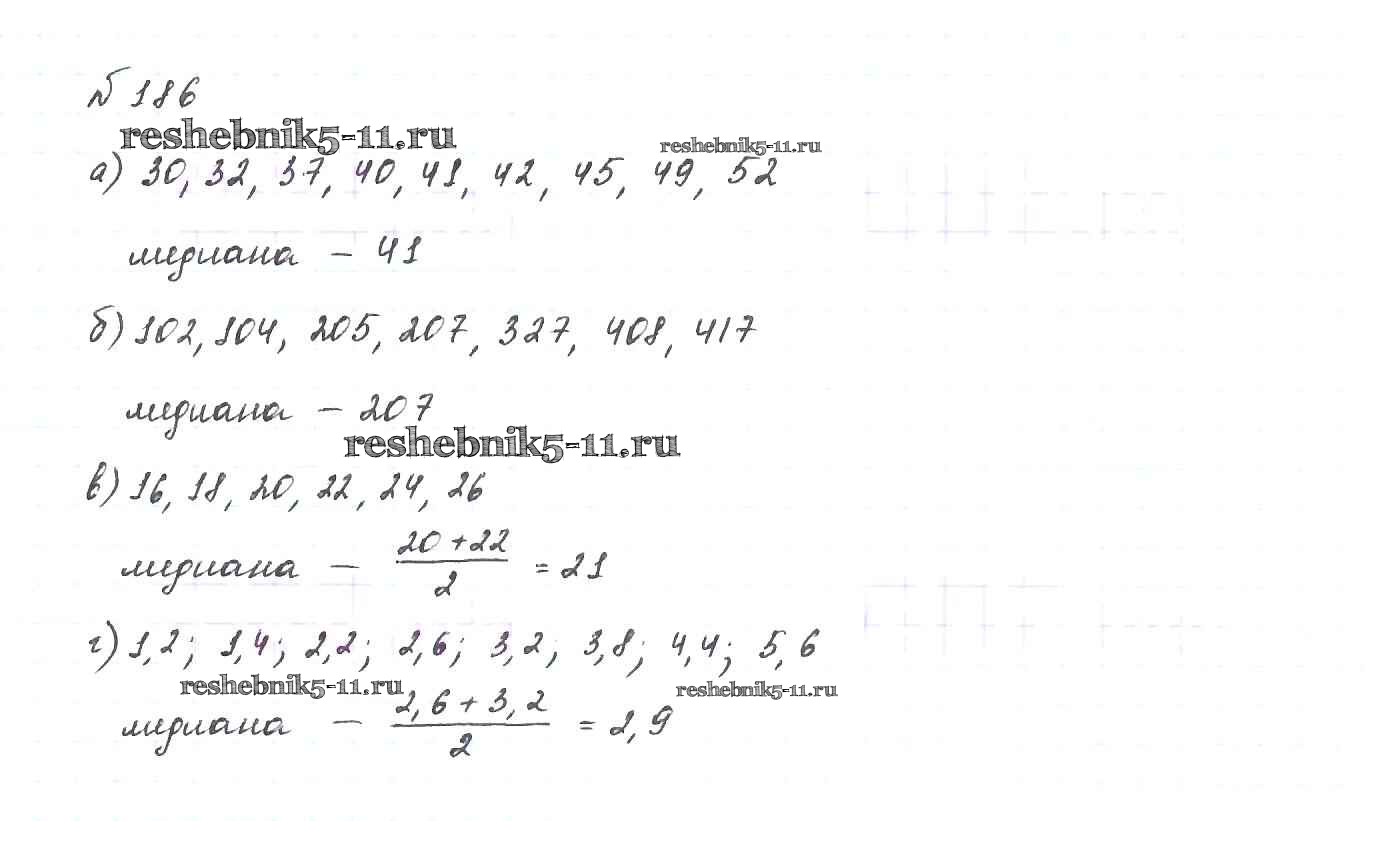 № 186
reshebnik5-11.ru
reshebnik5-11.ru
а) 30, 32, 37, 40, 41, 42, 45, 49, 52
медиана – 41
б) 102, 104, 205, 207, 327, 408, 417
медиана – 207
reshebnik5-11.ru
в) 16, 18, 20, 22, 24, 26
медиана – (20 + 22)/2 = 21
г) 1,2; 1,4; 2,2; 2,6; 3,2; 3,8; 4,4; 5,6
reshebnik5-11.ru
reshebnik5-11.ru
медиана – (2,6 + 3,2)/2 = 2,9